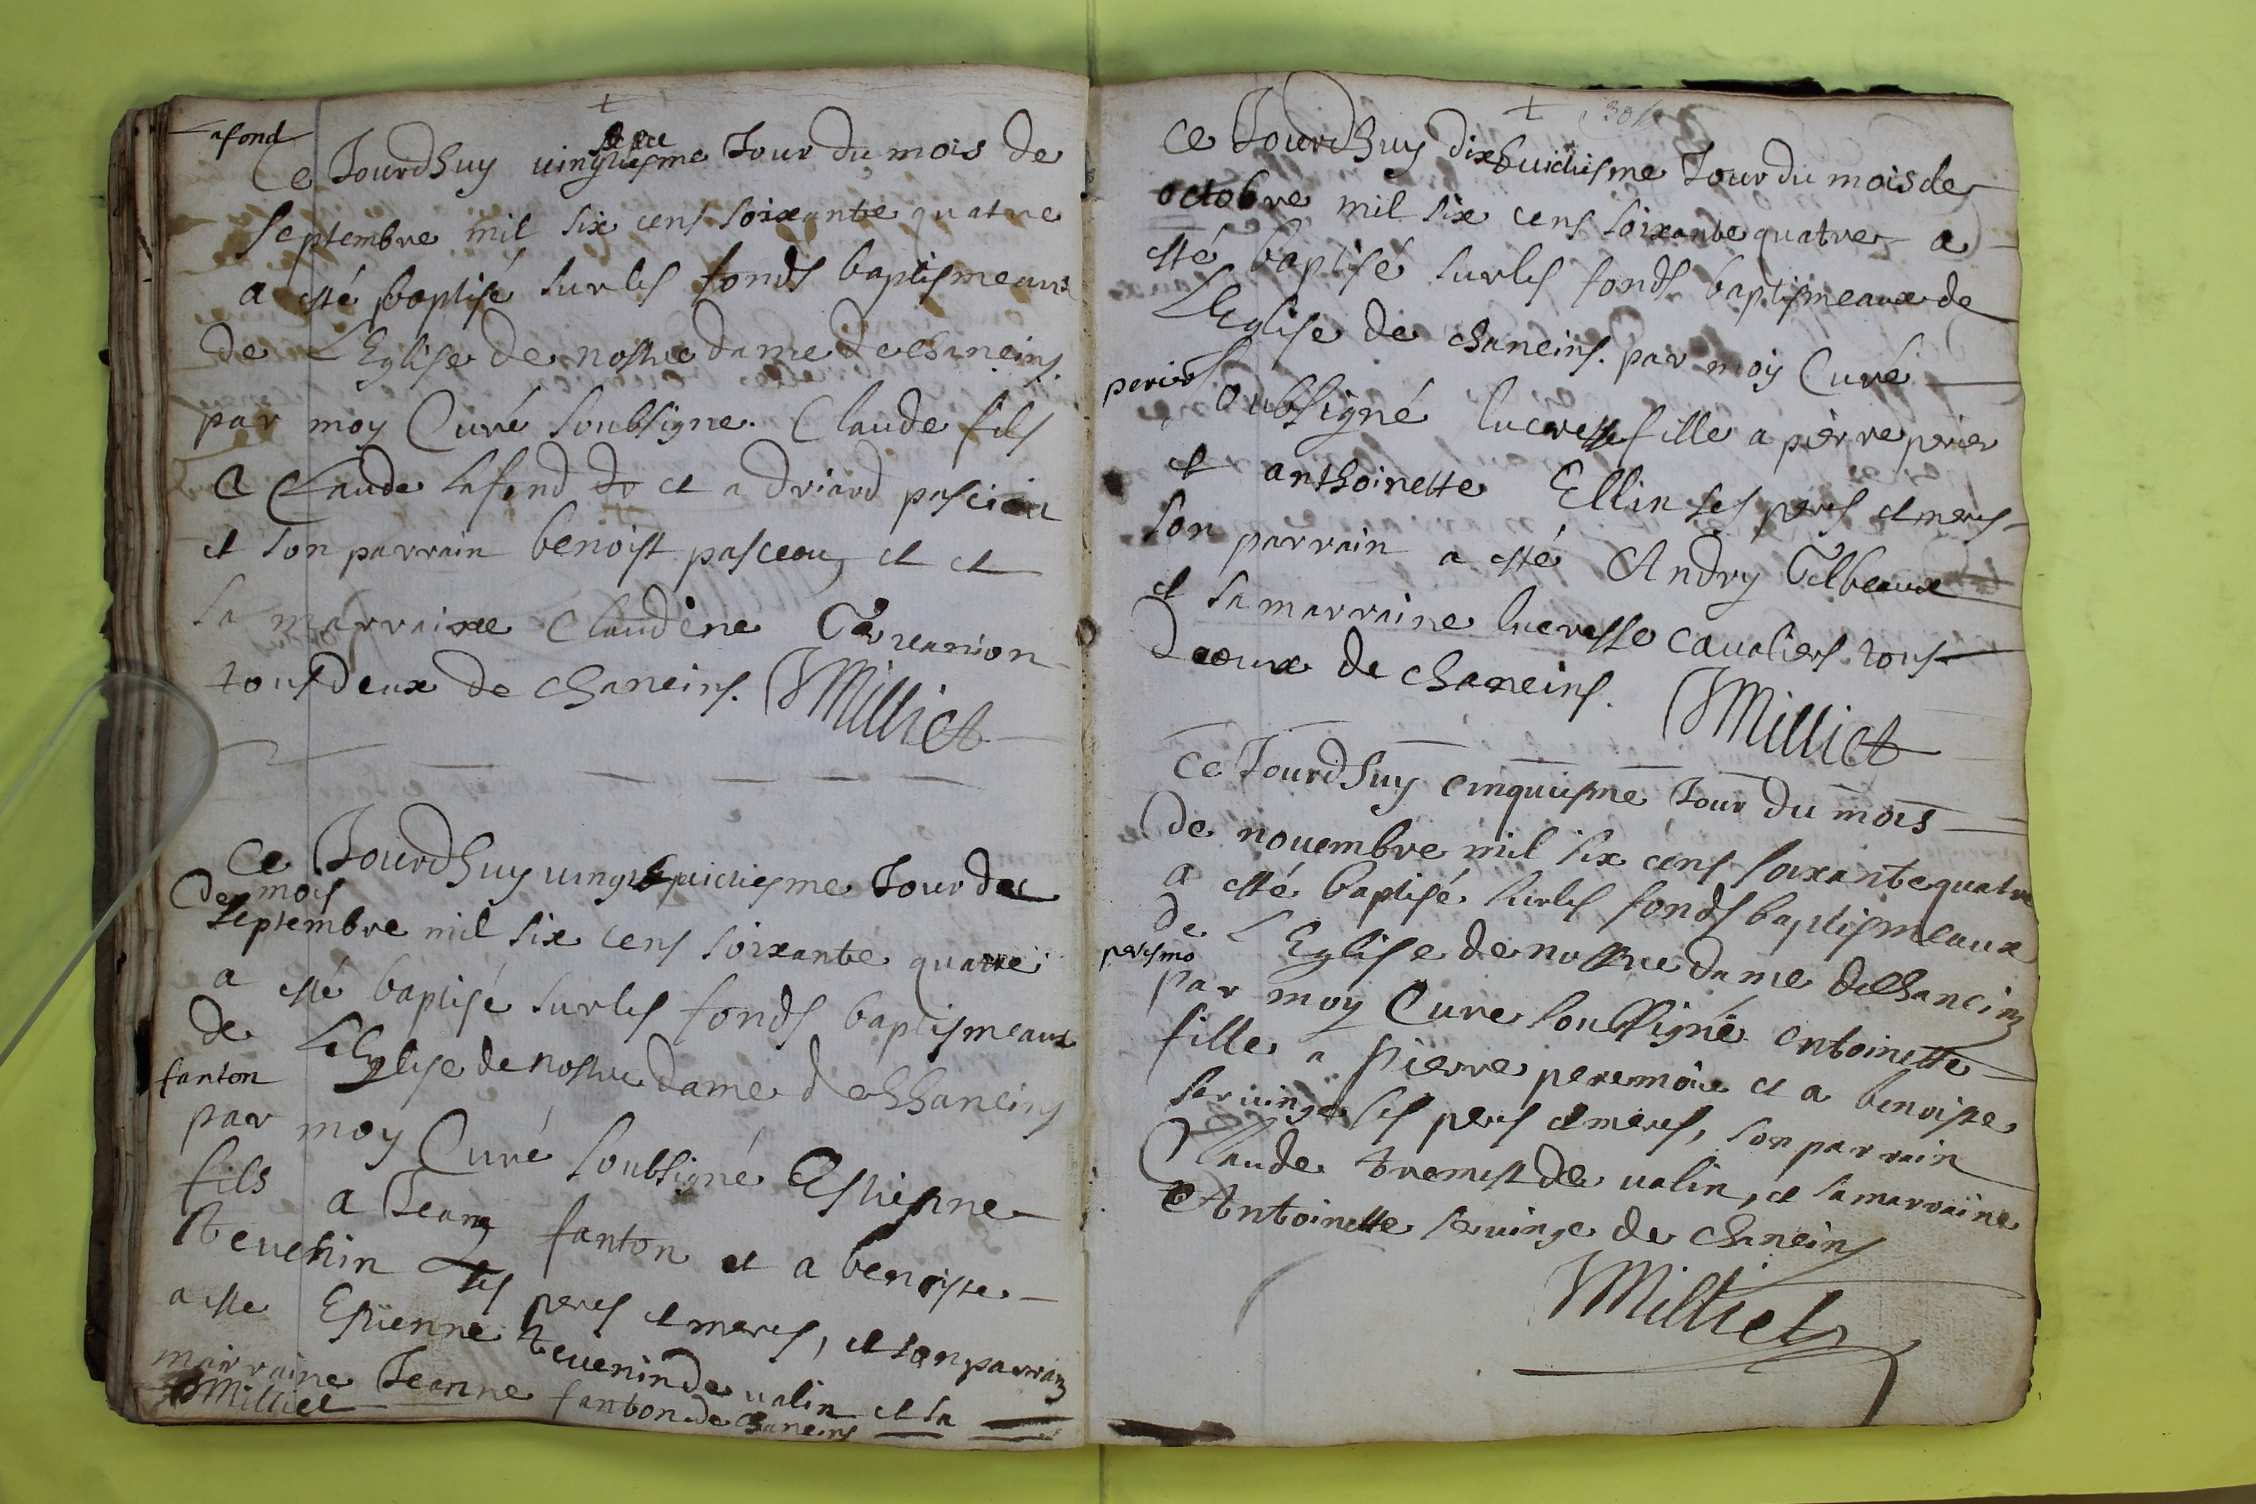 afond
Ce Jourdhuy vingtiesme Jour du mois de
septembre mil six cens soixante quatre
a esté baptisé sur les fonds baptismeaux
de L'Eglise de nostre dame de chaneins
par moy Curé soubsigne. Claude fils
a Claude Lafond et a
et son parrain benoist pasceau et et
la marraine Claudene
tous deux de chaneins. JMilliet
Ce Jourdhuy vingt huictiesme Jour de
de mois
septembre mil six cens soixante quatre
a esté baptisé sur les fonds baptismeaux
de L'Eglise de nostre dame de Chaneins
fanton
par moy Curé soubsigné Estienne
fils a Jean fanton et a benoiste
tevenin ses peres et meres, et son parrain
a este Estienne tevenin de valin et sa
marraine Jeanne fanton de chaneins
JMilliet
Ce Jourdhuy dixhuictiesme Jour du mois de
octobre mil six cens soixante quatre a
esté baptisé sur les fonds baptismeaux de
L'Eglise de chaneins. par moy Curé
perier
soubsigné lucresse fille a pierre perier
et anthoinette Ellin ses peres et meres
son parrain a esté Andry
et sa marraine lucresse cavaliers tous
deoux de chaneins. JMilliet
Ce Jourdhuy cinquiesme Jour du mois
de novembre mil six cens soixante quatre
a esté baptisé sur les fonds baptismeaux
de L'Eglise de nostre dame de Chaneins
peresmo
par moy Cure soubsigné antoinette
fille a pierre peremoie et a benoiste
servinge ses peres et meres, son parrain
Claude tremest de valin, et sa marraine
Antoinette servinge de chaneins
JMilliet